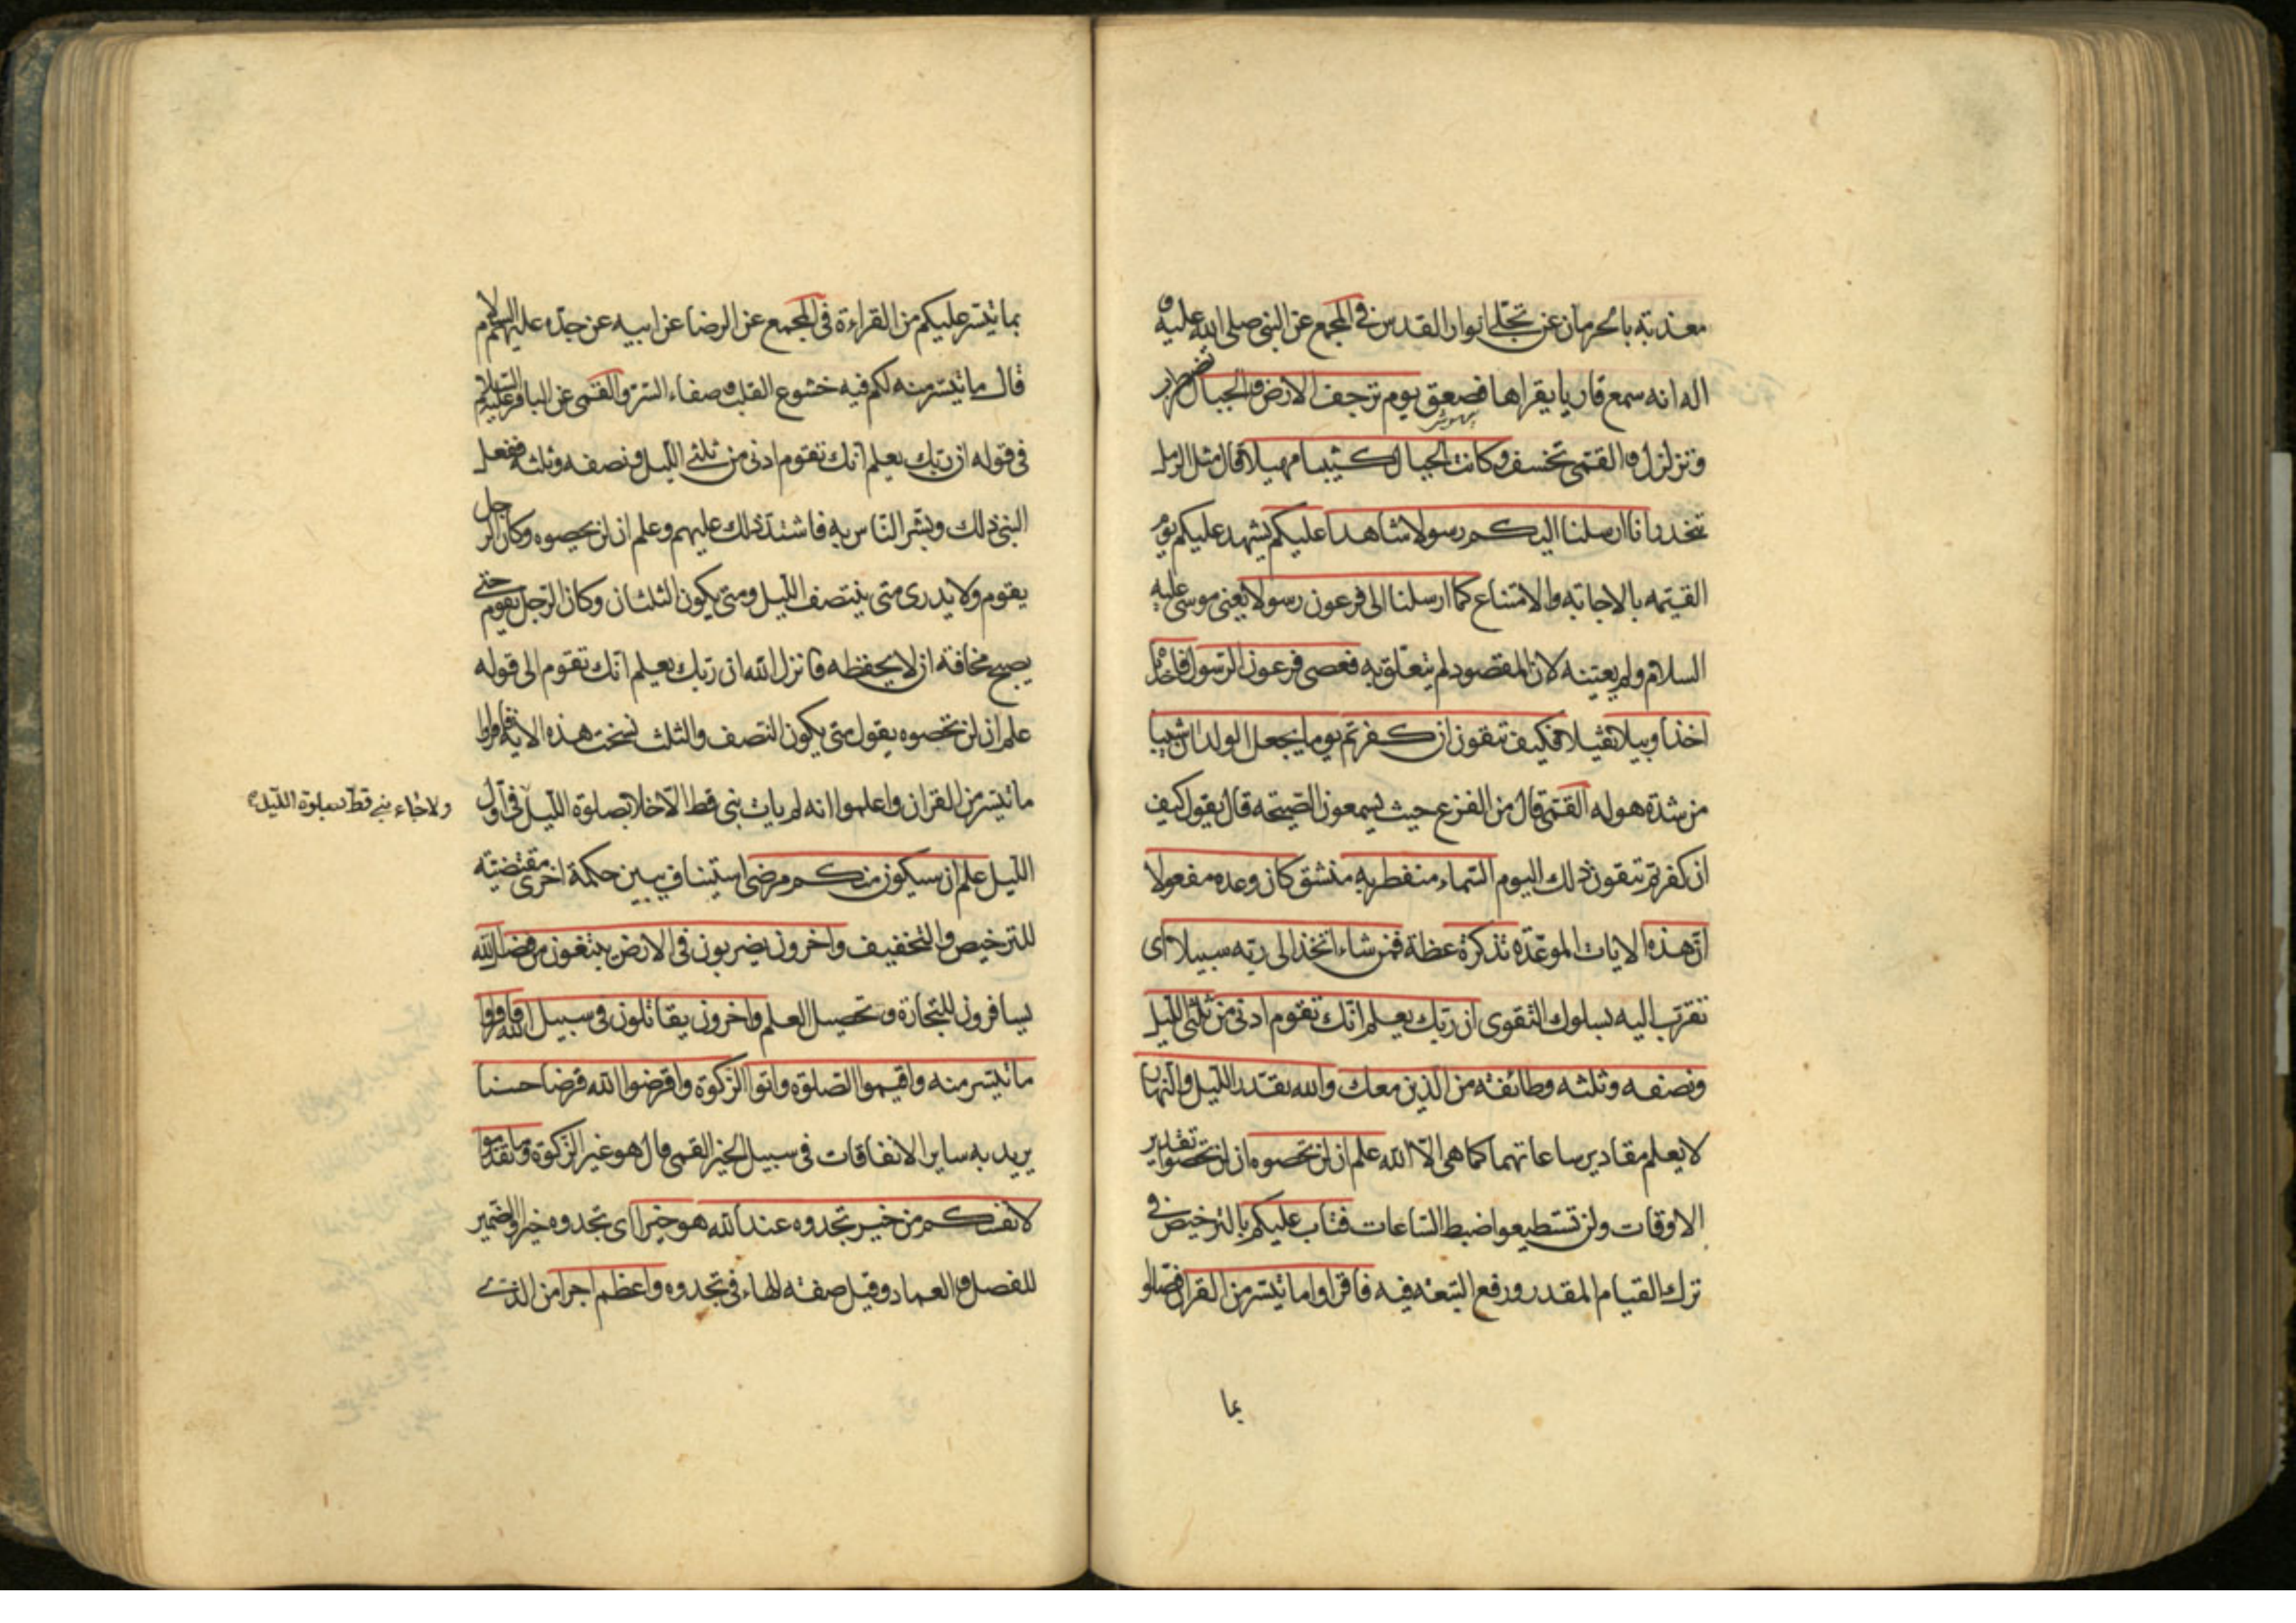 معذبة بالحرمان عن تجلي انوار القدس في المجمع عن النبي صلى الله عليه و
اله انه سمع قاريا يقراها فصعق يوم ترجف الارض والجبال تضطرب
وتزلزل والقمي تخسف وكانت الجبال كثيبا مهيلا قال مثل الرمل
تنحدر انا ارسلنا اليكم رسولا شاهدا عليكم يشهد عليكم يوم
القيمه بالاجابة والامتناع كما ارسلنا الى فرعون رسولا يعني موسى عليه
السلام ولم يعينه لان المقصود لم يتعلق به فعصى فرعون الرسول فاخذناه
اخذا وبيلا ثقيلا فكيف تتقون ان كفرتم يوما يجعل الولدان شيبا
من شدة هوله القمي قال من الفزع حيث يسمعون الصيحة قال يقول كيف
ان كفرتم تتقون ذلك اليوم السماء منفطر به منشق كان وعده مفعولا
ان هذه الايات الموعدة تذكرة عظة فمن شاء اتخذ الى ربه سبيلا اى
تقرب اليه بسلوك التقوى ان ربك يعلم انك تقوم ادنى من ثلثي الليل
ونصفه وثلثه وطائفة من الذين معك والله يقدر الليل والنهار
لا يعلم مقادير ساعاتهما كما هي الا الله علم ان لن تحصوه ان لن تحصوا تقدير
الاوقات ولن تستطيعوا ضبط الساعات فتاب عليكم بالترخيص في
ترك القيام المقدر ورفع التبعة فيه فاقراوا ما تيسر من القران فصلوا
بما
بما تيسر عليكم من القراءة في المجمع عن الرضا عن ابيه عن جده عليهم السلام
قال ما تيسر منه لكم فيه خشوع القلب وصفاء السر والقمي عن الباقر عليه السلام
في قوله ان ربك يعلم انك تقوم ادنى من ثلثي الليل ونصفه وثلثه ففعل
النبي ذلك وبشر الناس به فاشتد ذلك عليهم وعلم ان لن تحصوه وكان الرجل
يقوم ولا يدرى متى ينتصف الليل ومتى يكون الثلثان وكان الرجل يقوم حتى
يصبح مخافة ان لا يحفظه فانزل الله ان ربك يعلم انك تقوم الى قوله
علم ان لن تحصوه يقول متى يكون النصف والثلث نسخت هذه الاية فاقراوا
ما تيسر من القران واعلموا انه لم يات نبي قط الا خلا بصلوة الليل في اول
ولا جاء نبي قط بصلوة الليل
الليل علم ان سيكون منكم مرضى استيناف يبين حكمة اخرى مقتضية
للترخيص والتخفيف واخرون يضربون في الارض يبتغون من فضل الله
يسافرون للتجارة وتحصيل العلم واخرون يقاتلون في سبيل الله فاقراوا
ما تيسر منه واقيموا الصلوة واتوا الزكوة واقرضوا الله قرضا حسنا
يريد به ساير الانفاقات في سبيل الخير القمي قال هو غير الزكوة وما تقدموا
لانفسكم من خير تجدوه عند الله هو خيرا اى تجدوه خيرا والضمير
للفصل والعماد وقيل صفة الهاء في تجدوه واعظم اجرا من الذي